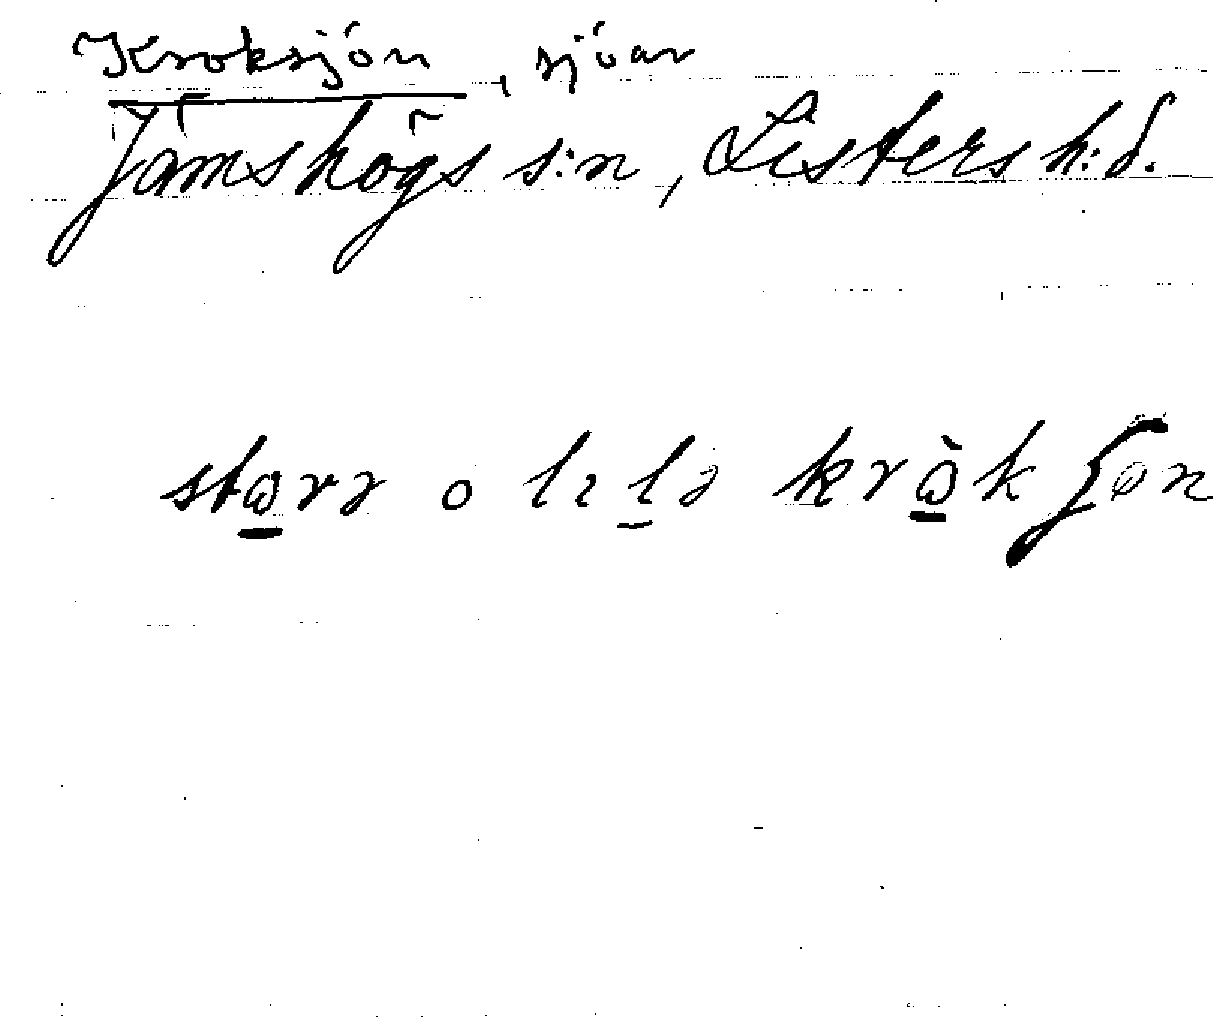 Kroksjön, sjöar
Jämshögs s:n, Listers h:d.
stɷrə o lɩlə krɷ̀kʃøn